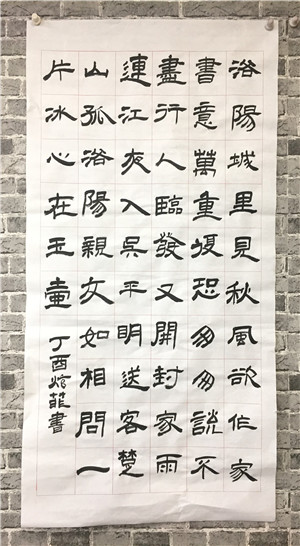 洛陽城里見秋風欲作家
書意萬重復恐匆匆説不
盡行人臨發又開封家雨
連江夜入吳平明送客楚
山孤洛陽親友如相問一
片冰心在玉壺
丁酉菲書